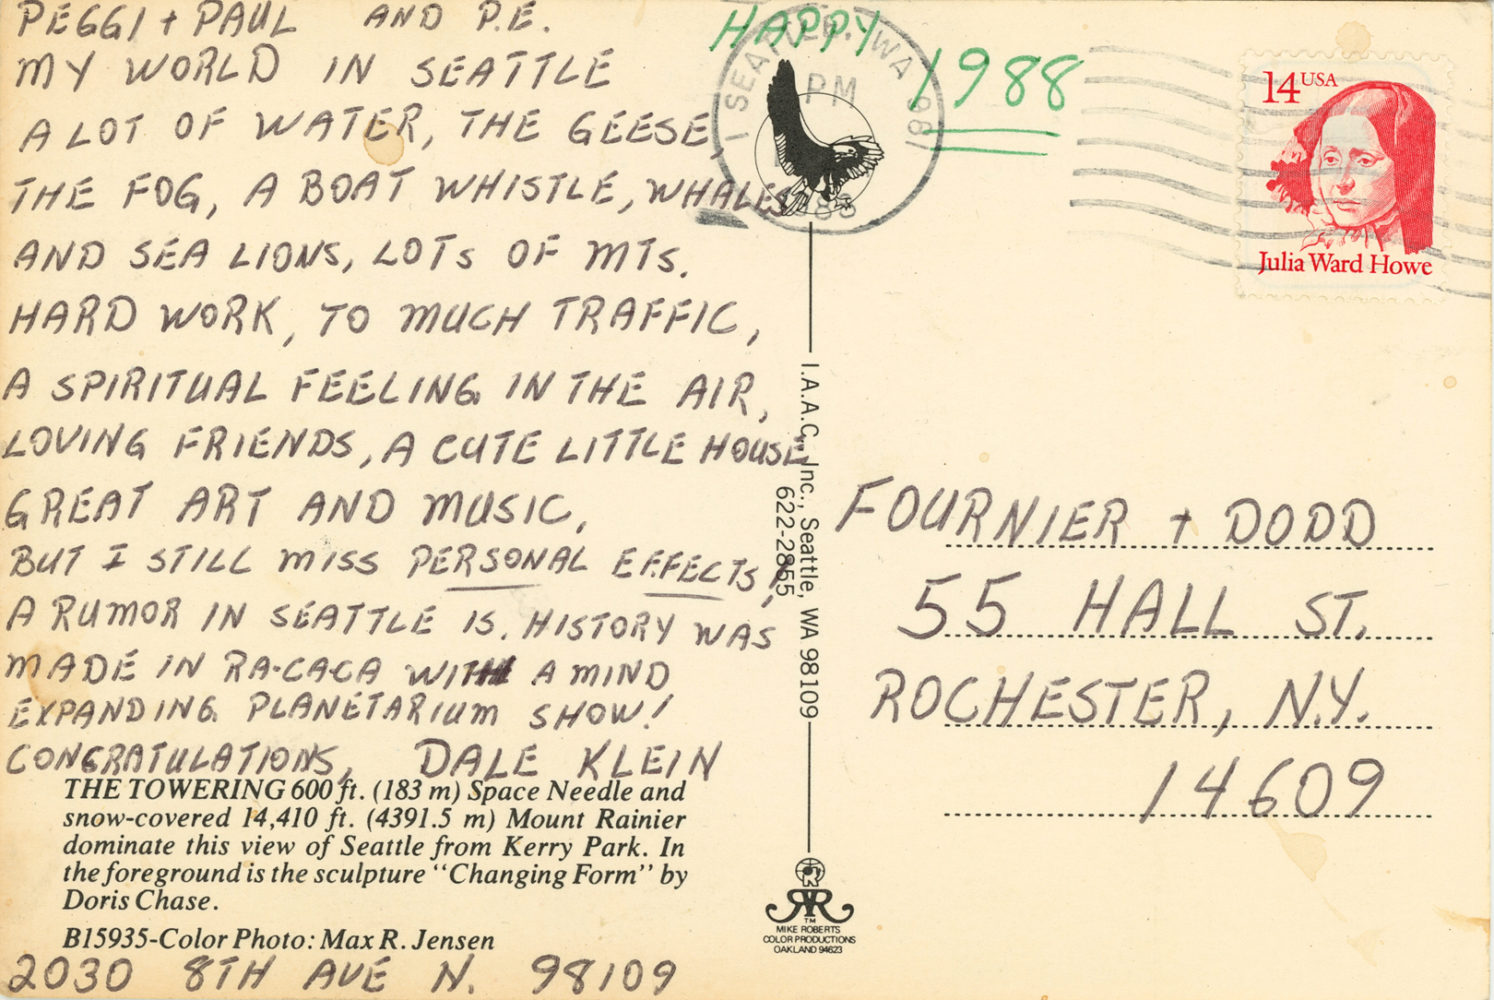 PEGGI + PAUL AND P.E.
MY WORLD IN SEATTLE
A LOT OF WATER, THE GEESE,
THE FOG, A BOAT WHISTLE, WHALES
AND SEA LIONS, LOTS OF MTS.
HARD WORK, TO MUCH TRAFFIC,
A SPIRITUAL FEELING IN THE AIR,
LOVING FRIENDS, A CUTE LITTLE HOUSE
GREAT ART AND MUSIC,
BUT I STILL MISS PERSONAL EFFECTS,
A RUMOR IN SEATTLE IS. HISTORY WAS
MADE IN RA-CA-CA WITH A MIND
EXPANDING PLANETARIUM SHOW!
CONGRATULATIONS, DALE KLEIN
THE TOWERING 600 ft. (183 m) Space Needle and
snow-covered 14,410 ft. (4391.5 m) Mount Rainier
dominate this view of Seattle from Kerry Park. In
the foreground is the sculpture "Changing Form" by
Doris Chase.
B15935-Color Photo: Max R. Jensen
2030 8TH AVE N. 98109
HAPPY 1988
SEATTLE, WA 981
PM
I.A.A.C., Inc., Seattle, WA 98109
622-2855
TM
MIKE ROBERTS
COLOR PRODUCTIONS
OAKLAND 94623
14 USA
Julia Ward Howe
FOURNIER + DODD
55 HALL ST.
ROCHESTER, N.Y.
14609